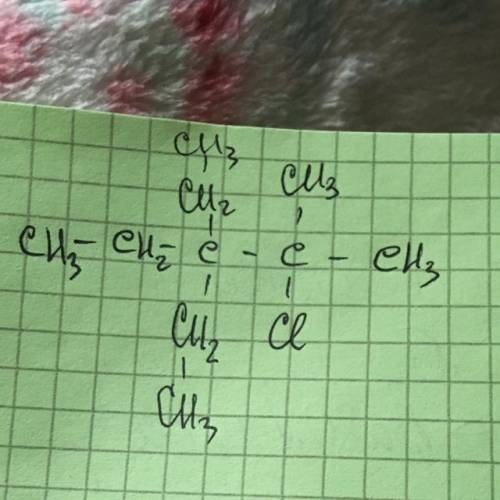 CH3
CH2 CH3
CH3 - CH2 - C - C - CH3
CH2 Cl
CH3